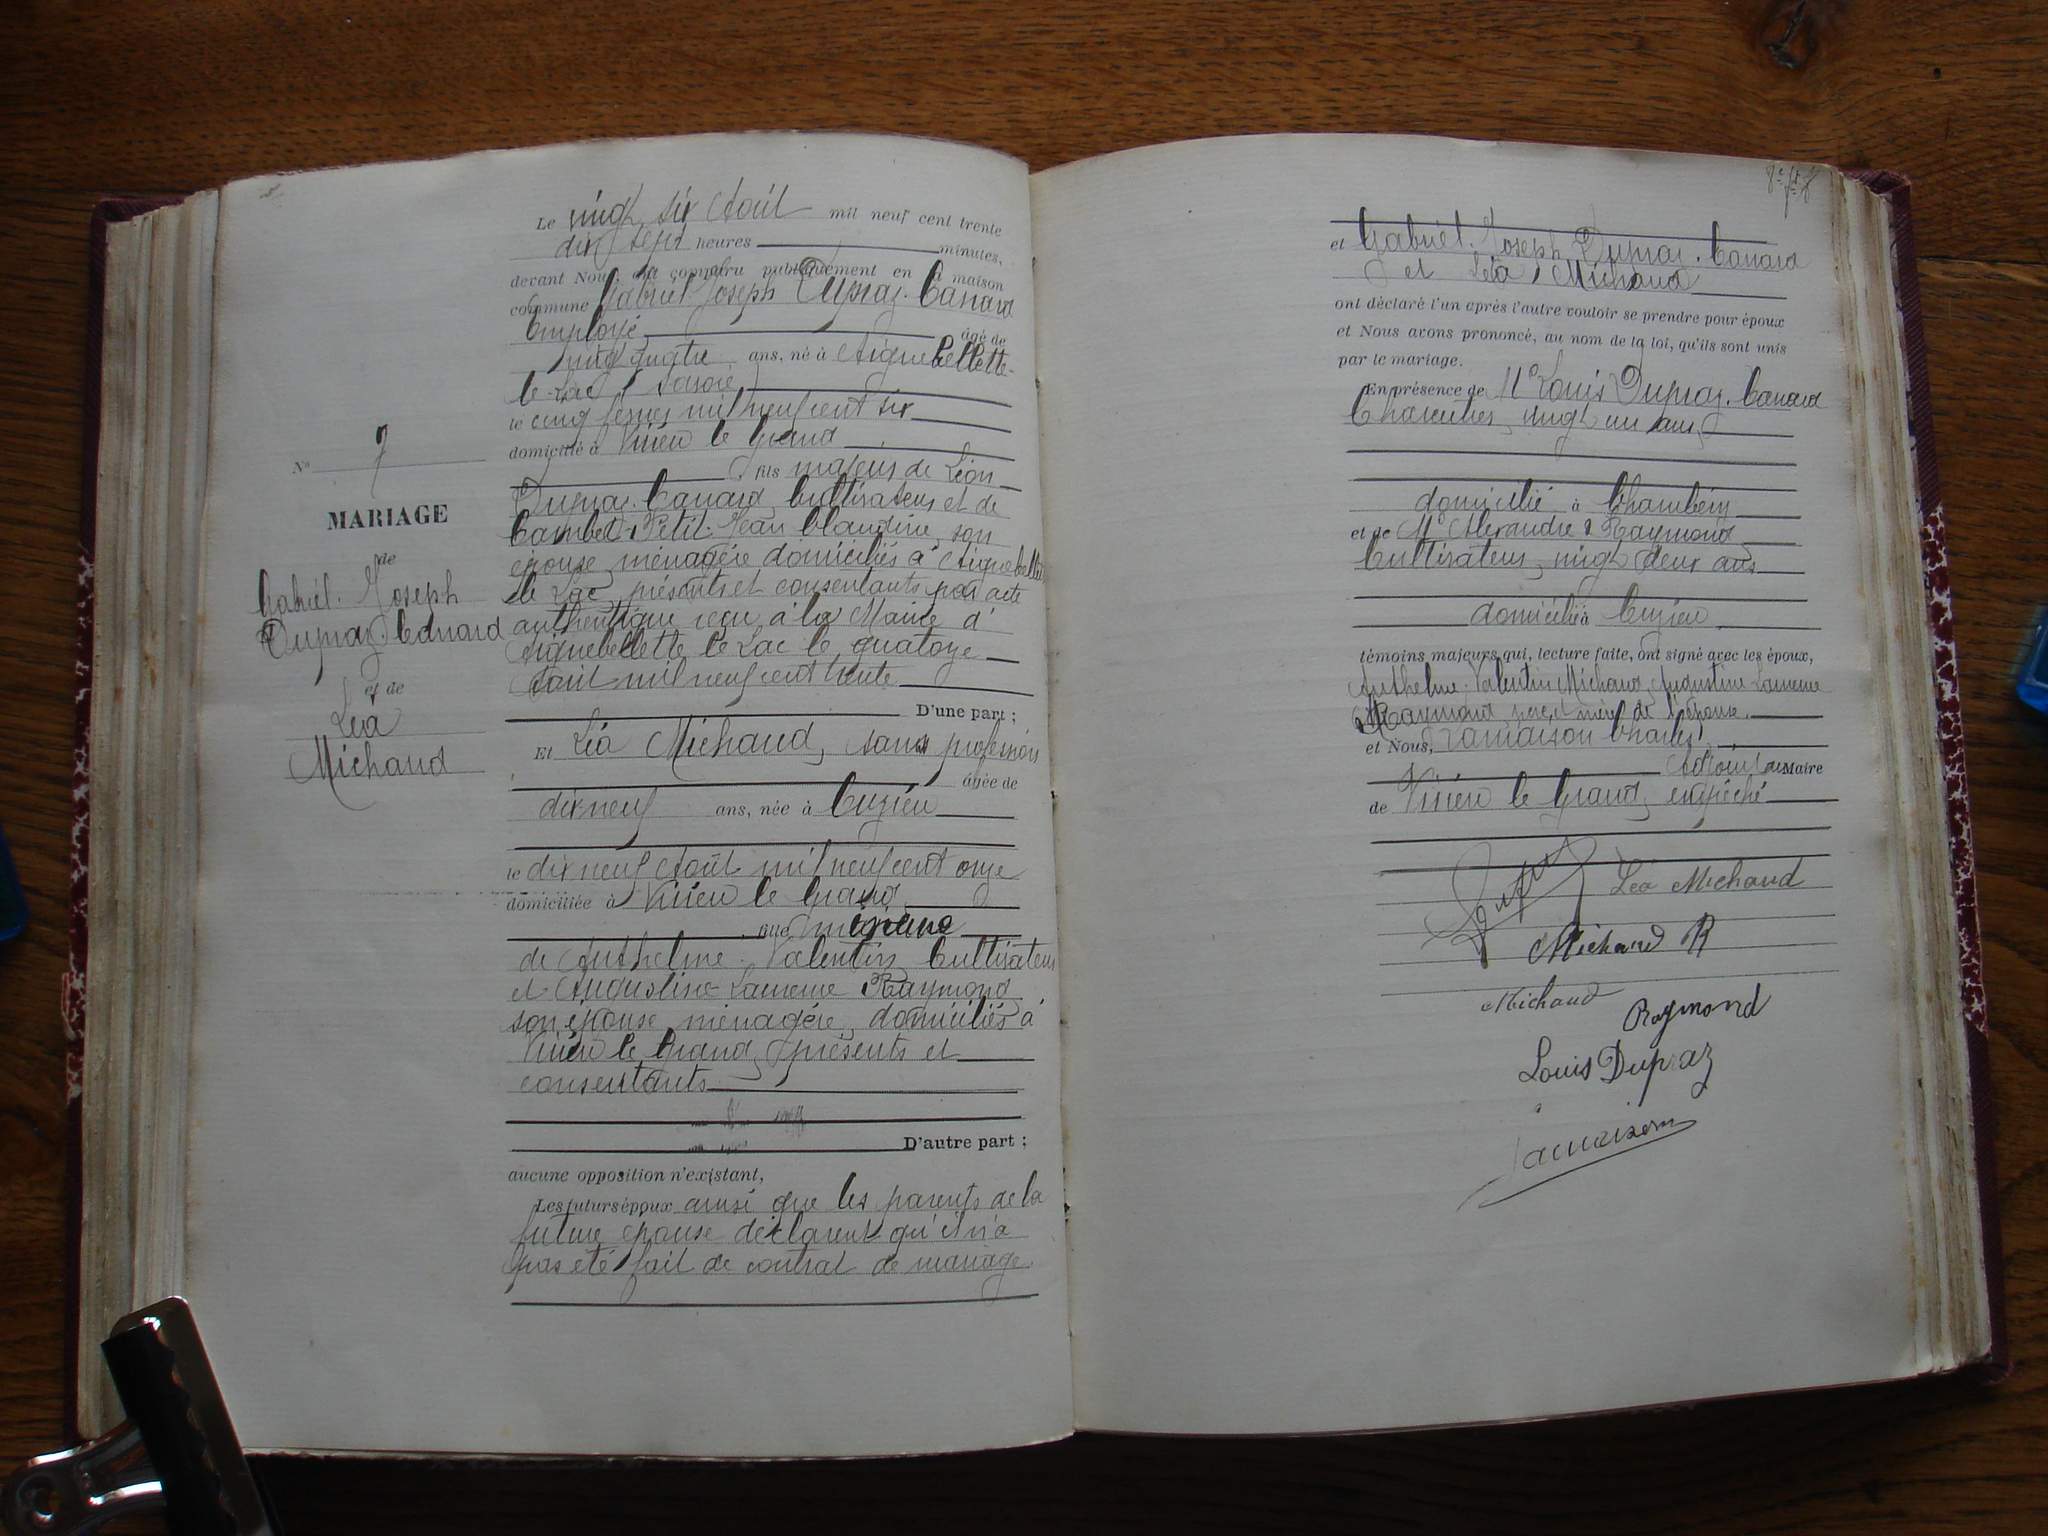 N° 7
MARIAGE
de
Gabriel Joseph
Dupraz-Canard
et de
Léa
Michaud
Le vingt six Août mil neuf cent trente
dix sept heures minutes,
devant Nous, ont comparu publiquement en la maison
commune Gabriel Joseph Dupraz-Canard
Employé âgé de
vingt quatre ans, né à Aiguebellette-
le-Lac Savoie
le cinq février mil neuf cent six
domicilié à Virieu le Grand
fils majeur de Léon
Dupraz-Canard, Cultivateur et de
Cambet-Petit-Jean Claudine, son
épouse, ménagère domiciliés à Aiguebellette
le Lac, présents et consentants par acte
authentique reçu à la Mairie d'
Aiguebellette le Lac le quatorze
Août mil neuf cent trente
D'une part ;
Et Léa Michaud, sans profession
âgée de
dix neuf ans, née à Cuzieu
le dix neuf Août mil neuf cent onze
domiciliée à Virieu le Grand
fille mineure
de Anthelme-Valentin, Cultivateur
et Augustine-Laurence Raymond
son épouse, ménagère, domiciliés à
Virieu le Grand, présents et
consentants
D'autre part ;
aucune opposition n'existant,
Les futurs époux ainsi que les parents de la
future épouse déclarent qu'il n'a
pas été fait de contrat de mariage.
et Gabriel Joseph Dupraz-Canard
et Léa Michaud
ont déclaré l'un après l'autre vouloir se prendre pour époux
et Nous avons prononcé, au nom de la loi, qu'ils sont unis
par le mariage.
En présence de Mr Louis Dupraz-Canard
Charcutier, vingt un ans,
domicilié à Chambéry
et de Mr Alexandre Raymond
Cultivateur, vingt deux ans
domicilié à Cuzieu
témoins majeurs qui, lecture faite, ont signé avec les époux,
Anthelme-Valentin Michaud, Augustine Laurence
Raymond père et mère de l'épouse.
et Nous, Lamaison Charles
Adjoint au Maire
de Virieu le Grand, empêché
Léa Michaud
Michaud R
Michaud
Raymond
Louis Dupraz
Lamaison